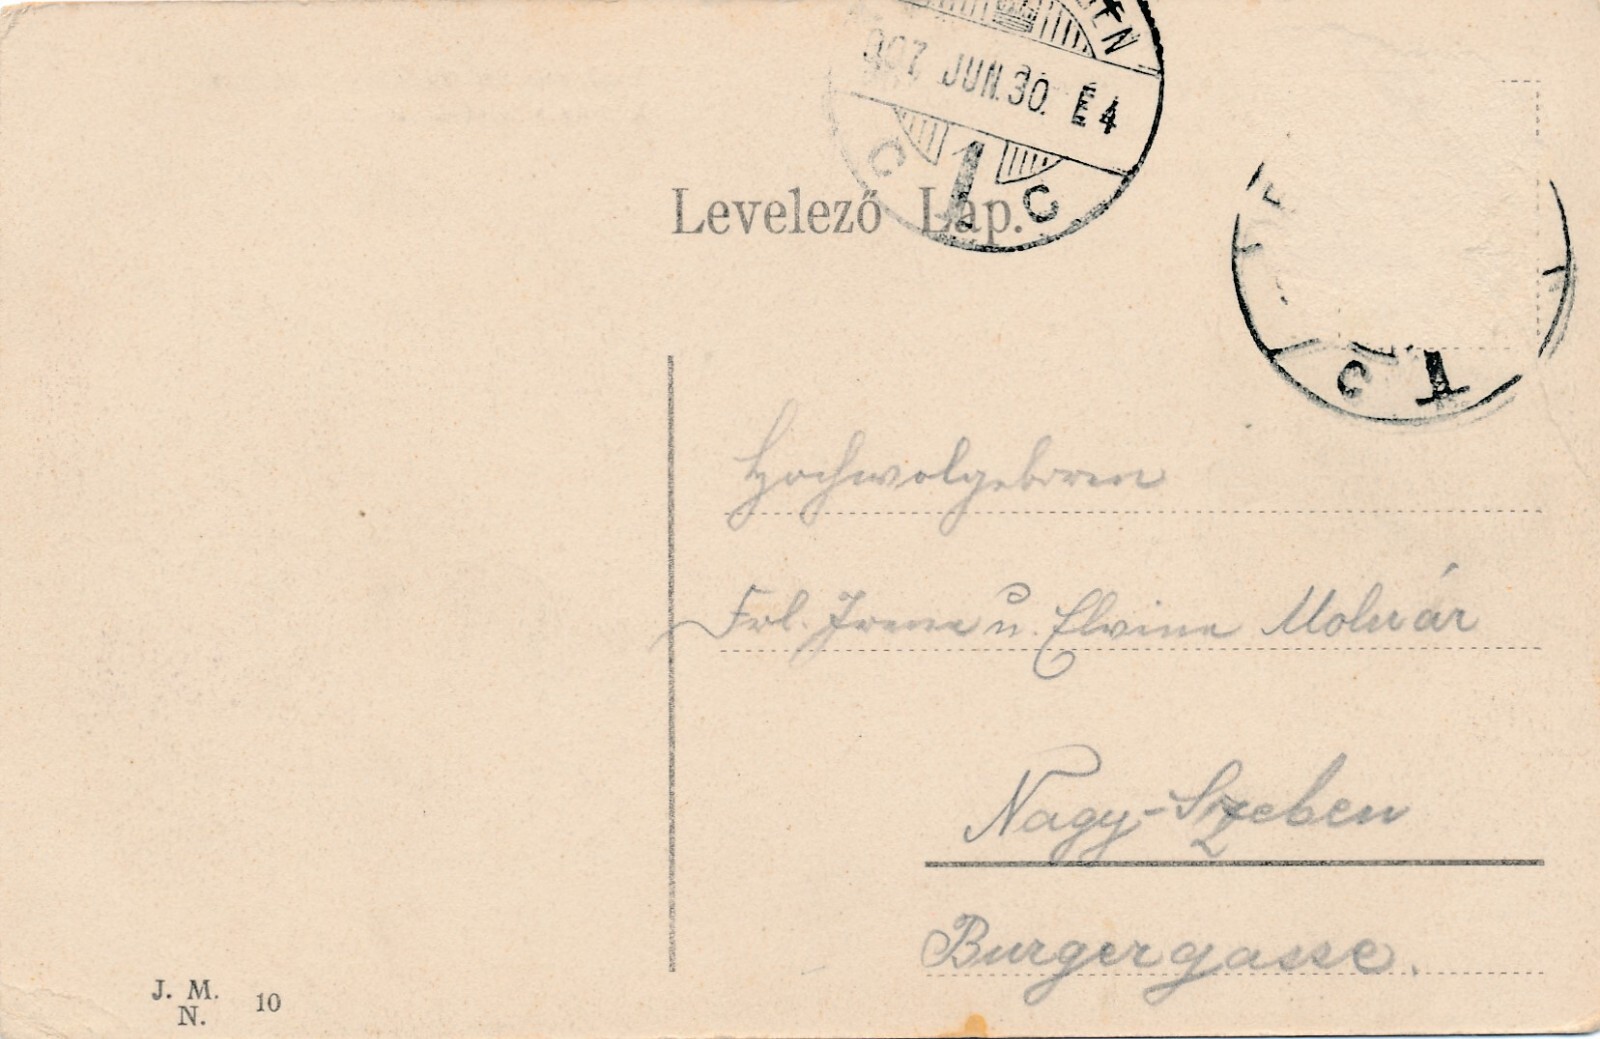 907 JUN. 30. E4
C 1 C
Levelező Lap.
T
Hochwolgeboren
Frl. Irene u. Elvine Molnár
Nagy-Szeben
Burgergasse.
J. M.
N. 10